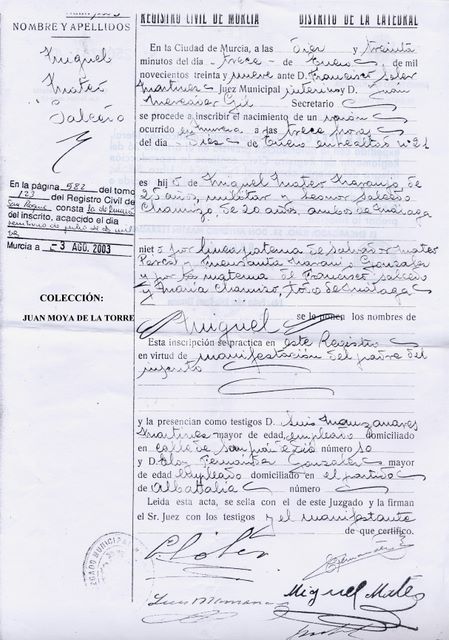 NOMBRE Y APELLIDOS
Miguel
Mateo
Salcedo
En la página 582 del tomo
123 del Registro Civil de
consta
del inscrito, acaecido el día
Murcia a - 3 AGO. 2003
COLECCIÓN:
JUAN MOYA DE LA TORRE
REGISTRO CIVIL DE MURCIA DISTRITO DE LA CATEDRAL
En la Ciudad de Murcia, a las diez y treinta
minutos del día trece de Enero de mil
novecientos treinta y nueve ante D. Francisco Soler
Martinez Juez Municipal interino y D. Juan
Gil Secretario
se procede a inscribir el nacimiento de un varón
ocurrido en Murcia a las trece horas
del día Diez de Enero en nº 21
es hijo de Miguel Mateo Naranjo, de
años, militar y Leonor Salcedo
Chamizo, de 20 años, ambos de Málaga
nieto por linea paterna de Salvador Mateo
y Naranjo Gonzalez
y por la materna de Francisco Salcedo
y Maria Chamizo, de Málaga
se le ponen los nombres de
Miguel
Esta inscripción se practica en este Registro
en virtud de manifestación del padre del
inscrito
y la presencian como testigos D. Luis Manzanares
Martinez mayor de edad, empleado domiciliado
en calle de número 50
y D. Eloy Fernandez Gonzalez mayor
de edad empleado domiciliado en el partido
de Albatalia número
Leida esta acta, se sella con el de este Juzgado y la firman
el Sr. Juez con los testigos y el manifestante
de que certifico.
Miguel Mateo